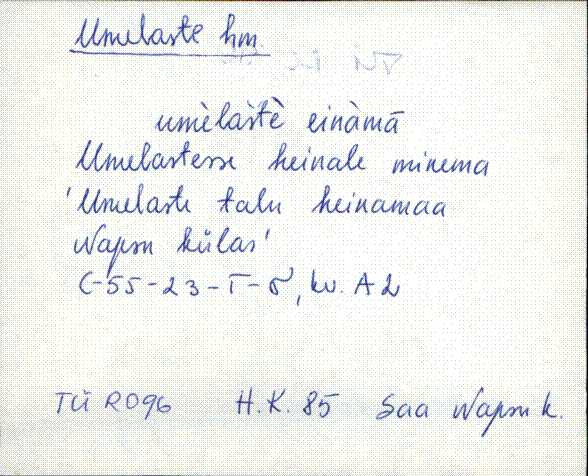 Umelaste hm.
umèlàstè einàmā
Umelastesse heinale minema
'Umelaste talu heinamaa
Napsu külas'
C-55-23-Г-б, kv. A2
TÜ R096 H.K. 85 Saa Napsu k.